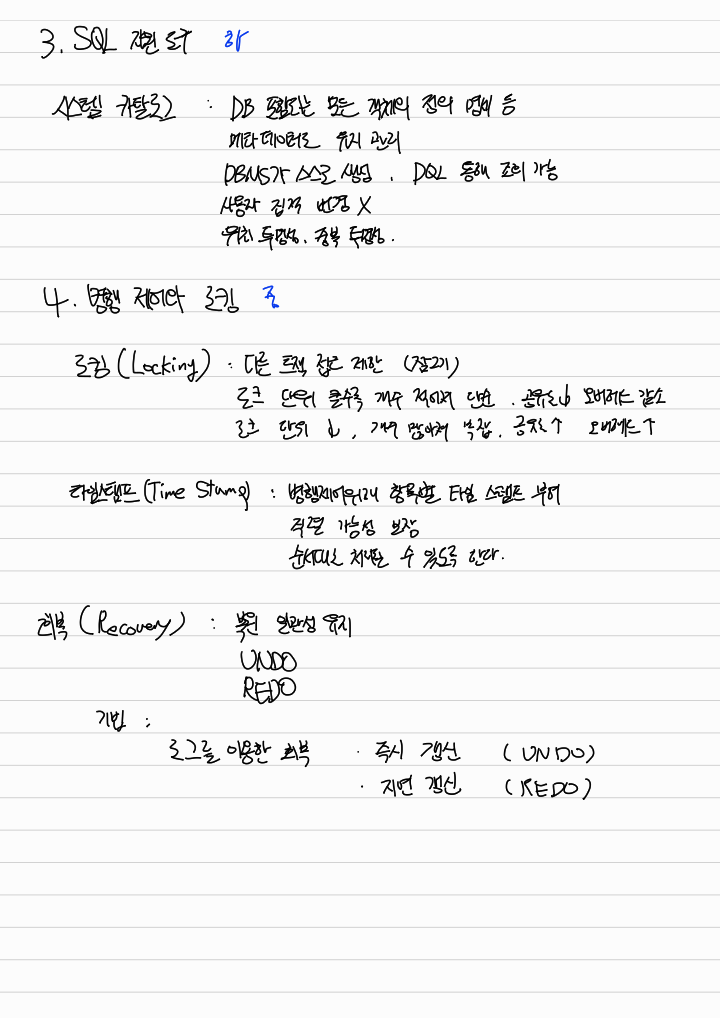 3. SQL 지원 도구 하
시스템 카탈로그 : DB 포함되는 모든 객체의 정의 명세 등
메타 데이터로 유지 관리
DBMS가 스스로 생성. DQL 통해 조회 가능
사용자 직접 변경 X
위치 투명성. 중복 투명성.
4. 병행 제어와 로킹 중
로킹 (Locking) : 다른 트랙 접근 제한 (잠그기)
로크 단위 클수록 개수 적어져 단순. 공유도↓ 오버헤드 감소
로크 단위 ↓, 개수 많아져 복잡. 공유도↑ 오버헤드↑
타임스탬프 (Time Stamp) : 병행제어위해 항목별 타임 스탬프 부여
직렬 가능성 보장
순서대로 처리할 수 있도록 한다.
회복 (Recovery) : 복원 일관성 유지
UNDO
REDO
기법 :
로그를 이용한 회복 · 즉시 갱신 (UNDO)
· 지연 갱신 (REDO)